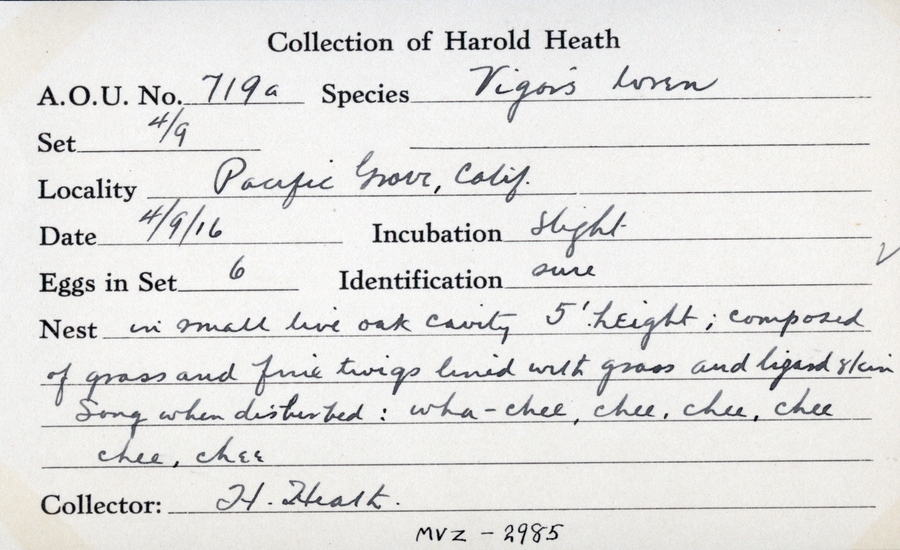 Collection of Harold Heath
A.O.U. No. 719a Species Vigors Wren
Set 4/9
Locality Pacific Grove, Calif.
Date 4/9/16 Incubation Slight
Eggs in Set 6 Identification sure
Nest in small live oak cavity 5' height; composed
of grass and fine twigs lined with grass and lizard skin
Song when disturbed: wha-chee, chee, chee, chee
chee, chee
Collector: H. Heath.
MVZ - 2985